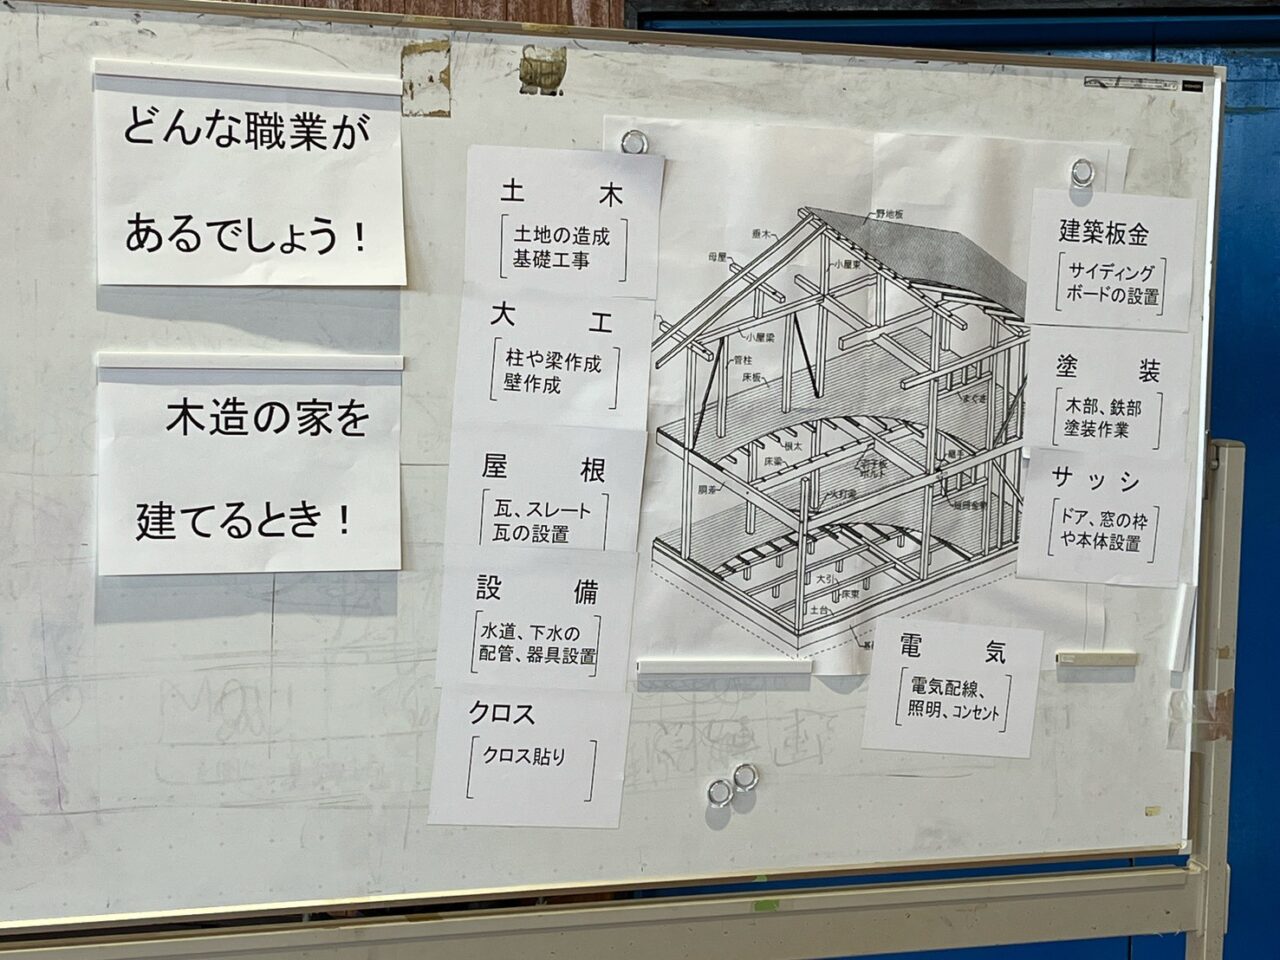 どんな職業が
あるでしょう！
木造の家を
建てるとき！
土　木
土地の造成
基礎工事
大　工
柱や梁作成
壁作成
屋　根
瓦、スレート
瓦の設置
設　備
水道、下水の
配管、器具設置
クロス
クロス貼り
野地板
垂木
母屋
小屋束
小屋梁
管柱
床板
まぐさ
根太
床梁
羽子板
ボルト
継手
胴差
火打梁
短冊金物
大引
床束
土台
建築板金
サイディング
ボードの設置
塗　装
木部、鉄部
塗装作業
サッシ
ドア、窓の枠
や本体設置
電　気
電気配線、
照明、コンセント